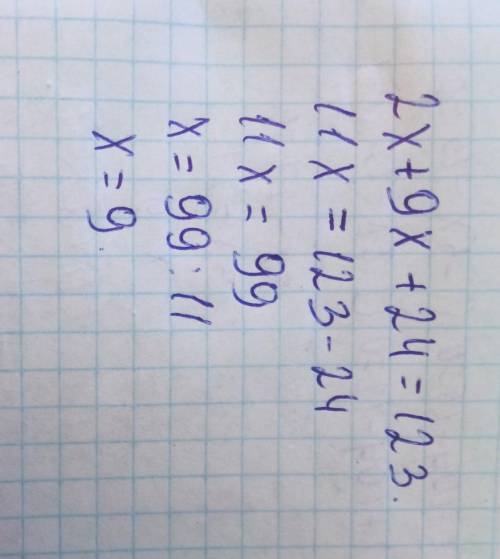 2x+9x+24=123.
11x=123-24
11x=99
x=99:11
x=9